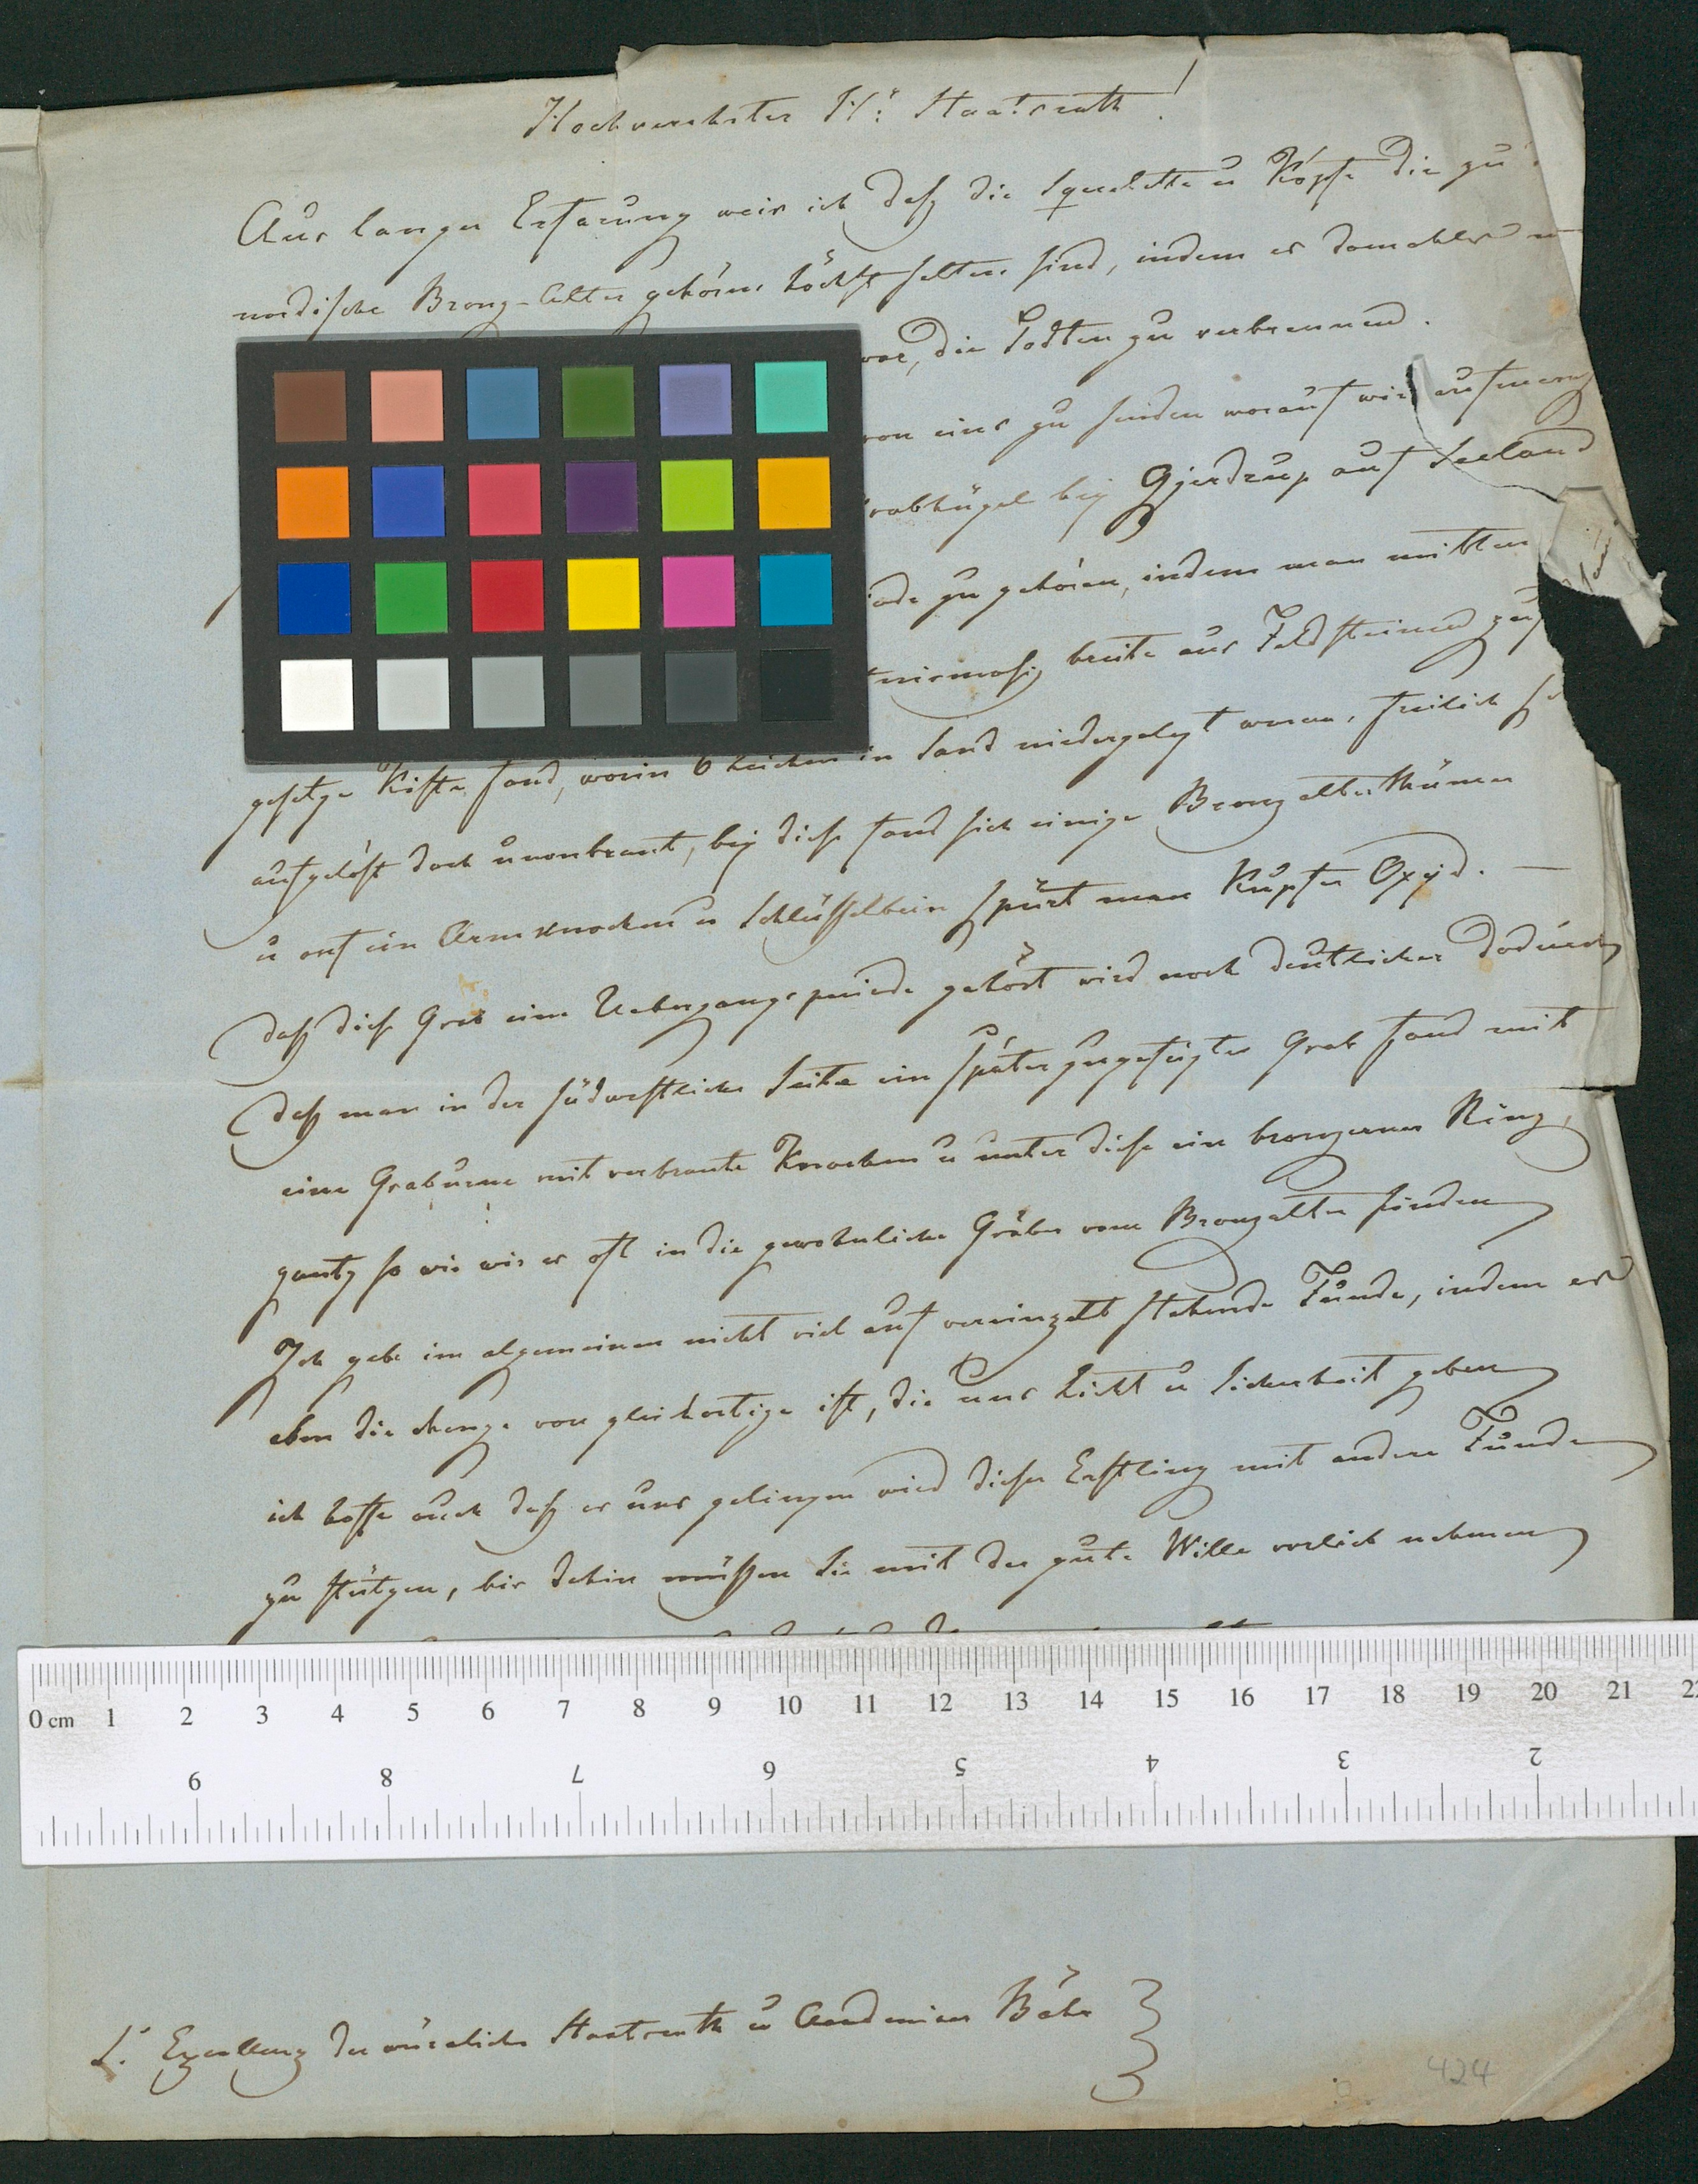 Hochverehrter Hr: Staatsrath!
Aus langer Erfarung weis ich daß die Squelette u Köpfe die zu
nordische Bronz-Alter gehören höchst selten sind, indem es damahls
war, die Todten zu verbrennen.
von eins zu senden worauf wir aufmerg
rabhügel bey Gjerdrup auf Seeland
iode zu gehören, indem man mitten
tnismasig breite aus Feldsteinen zus
gesetze Kiste fand, worin 6 Leichen in Sand niedergelegt waren, freilich
aufgelöst doch unverbrant, bey diese fand sich einige Bronzalterthümer
u auf ein Armknochen u Schlüsselbein spürt man Kupfer Oxyd. —
daß dies Grab eine Uebergangsperiode gehört wird noch deutlicher dadurch
daß man in der südwestliche Seite ein später zugefügtes Grab fand mit
eine Graburne mit verbrante Knochen u unter diese ein bronzernes Ring,
gantz so wie wir es oft in die gewohnliche Gräber vom Bronzalter finden
Ich gebe im algemeinen nicht viel auf vereinzelt stehende Funde, indem es
eben die Menge von gleichartige ist, die uns Licht u Sicherheit geben
ich hoffe auch daß es uns gelingen wird dieser Erstling mit andere Funde
zu stützen, bis dahin müßen Sie mit der gute Wille vorlieb nehmen
0 cm 1 2 3 4 5 6 7 8 9 10 11 12 13 14 15 16 17 18 19 20 21 22
9 8 7 6 5 4 3 2
S. Exzellenz der würcliche Staatsrath u Academiker Bähr
424